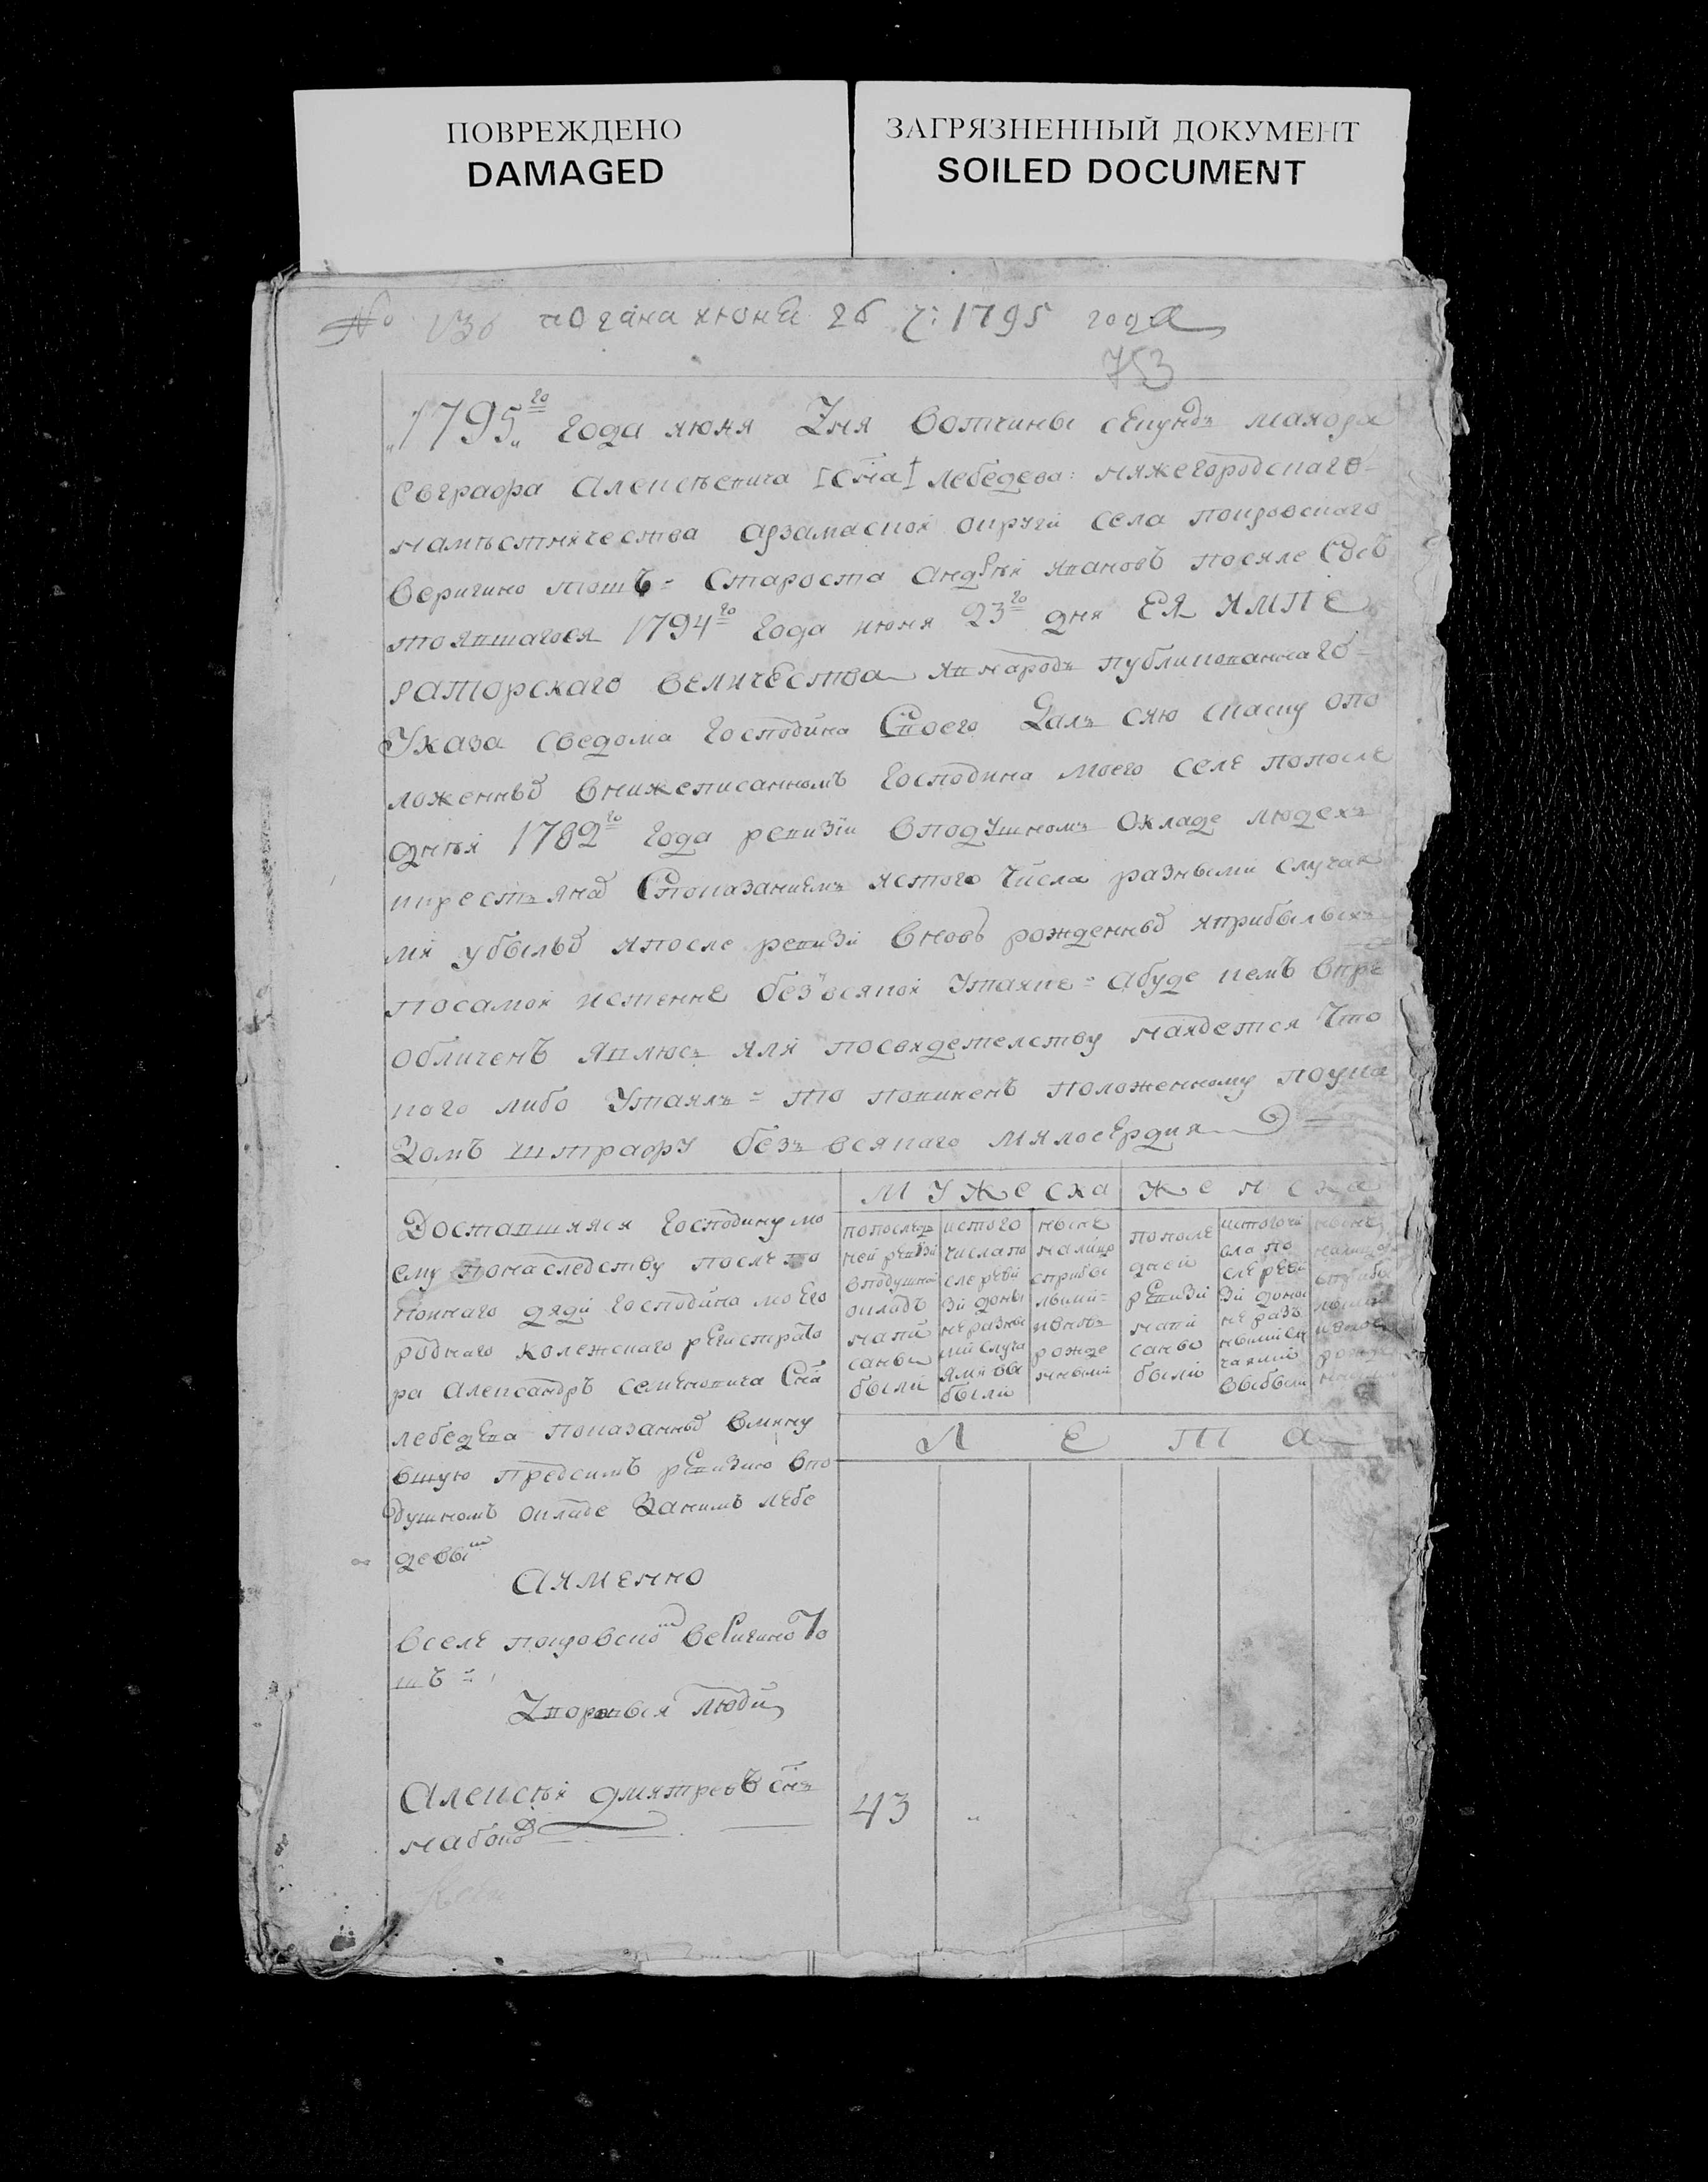 ПОВРЕЖДЕНО
DAMAGED
ЗАГРЯЗНЕННЫЙ ДОКУМЕНТ
SOILED DOCUMENT
№ подана июня 26 ч: 1795 года
753
„1795„ го года июня дня вотчины секундъ маиора
Евграфа Алексѣевича [сна] лебедева: нижегородскаго
намѣстничества арзамаской округи села покровскаго
Веригино тошъ = староста андрѣй ивановъ после сос
тоявшагося 1794 го года июня 23 го дня ЕЯ ИМПЕ
РАТОРСКАГО ВЕЛИЧЕСТВА внародъ публикованнаго
Указа сведома господина своего далъ сию скаску опо
ложенныхъ внижеписанномъ господина моего селе попосле
дней 1782 го года ревизии вподушномъ окладе людехъ
икрестъянах споказаниемъ истого числа разными случая
ми убылых ипосле ревизи вновь рожденных иприбылыхъ
посамой истенне безъвсякой утайке = абуде кемъ впре
обличенъ явлюсъ или посвидетелству найдется что
кого либо утаилъ = то повиненъ положенному поука
зомъ штрафу безъ всякаго милосердия
МУЖЕСКА
ЖЕНСКА
Доставшияся господину мо
ему понаследству после по
койнаго дяди господина моего
роднаго колежскаго регистрато
ра александръ семеновича сна
лебедева показанных вмину
вшую предсимъ ревизию впо
душномъ окладе занимъ лебе
девым
попоследъ
ней ревизи
вподушной
окладъ
напи
саны
были
истого
числа по
сле реви
зи доны
не разны
ми случа
ями вы
были
ныне
налицо
сприбы
лыми =
ивновъ
рожде
нными
попосле
дней
ревизи
напи
саны
были
истого чи
сла по
сле реви
зи доны
не разъ
ными слу
чаями
выбыли
ныне
ЛЕТА
аименно
вселе покровско веригино то
шъ =
дворовыя люди
Алексѣй дмитревъ снъ
набоко
43